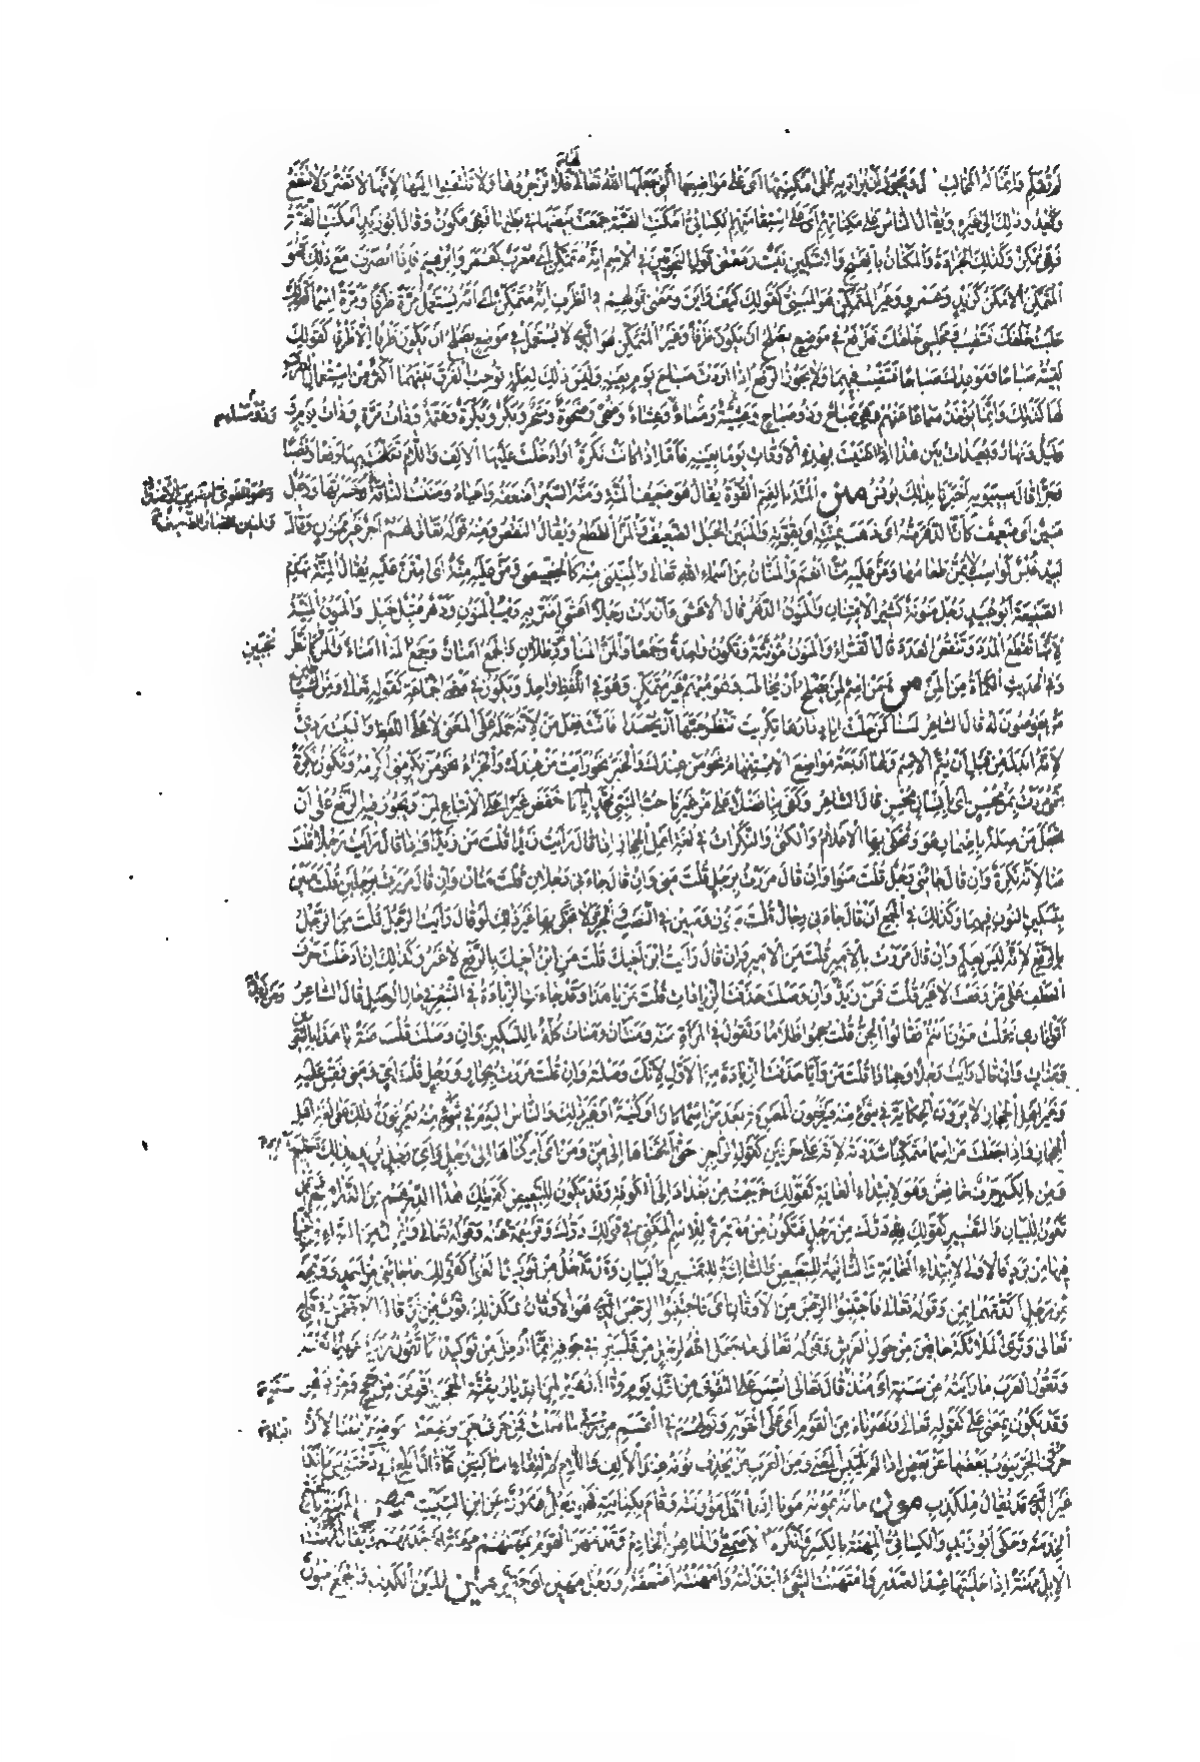 لم تعلم فإنما له الخالب وتجوز أن يراد به على أمكنتها أي على مواضعها التي جعلها الله تعالى لها فلا تزجروها ولا تلتفتوا إليها لأنها لا تضر ولا تنفع
ولا تعدو ذلك إلى غيره ويقال الناس على مكناتهم أي على استقامتهم الكسائي أمكنت الضبة جمعت بيضها في بطنها فهي مكون وقال أبو زيد أمكنت الضبة
فهي ممكن وكذلك الجرادة والمكنان بالفتح والتسكين نبت ومعنى قول النحويين في الاسم إنه متمكن أي معرب كعمر وإبرهيم فإذا انصرف مع ذلك فهو
المتمكن الأمكن كزيد وعمرو وغير المتمكن هو المبني كقولك كيف وأين ومعنى قولهم في الظرف إنه متمكن أنه يستعمل مرة ظرفا ومرة اسما كقولك
جلست خلفك فتنصب ومجلسي خلفك فترفع في موضع يصلح أن يكون ظرفا وغير المتمكن هو الذي لا يستعمل في موضع يصلح أن يكون ظرفا إلا ظرفا كقولك
لقيته صباحا وموعدك صباحا فتنصب فيهما ولا يجوز الرفع إذا أردت صباح يوم بعينه وليس ذلك لعلة توجب الفرق بينهما أكثر من استعمال العرب
لها كذلك وإنما يؤخذ سماعا عنهم وهي صباح وذو صباح وعشية ومساء وعشاء وضحى وضحوة وسحر وبكر وبكرة وعتمة وذات مرة وذات يوم
وليل ونهار وبعيدات بين هذا إذا عنيت بهذه الأوقات يوما بعينه فأما إذا كانت نكرة أو أدخلت عليها الألف واللام تكلمت بها رفعا ونصبا
وجرا قال سيبويه أخبرنا بذلك يونس منن المنة بالضم القوة يقال هو ضعيف المنة ومنه السير أضعفه وأعياه ومننت الناقة حسرتها ورجل
منين أي ضعيف كأن الدهر منه أي ذهب بمنته أي بقوته والمنين الحبل الضعيف والمن القطع ويقال النقص ومنه قوله تعالى لهم أجر غير ممنون وقال
لبيد غبس كواسب لا يمن طعامها ومن عليه منا أنعم والمنان من أسماء الله تعالى والمنيني منه كالخصيصى ومن عليه منة أي امتن عليه يقال المنة تهدم
الصنيعة أبو عبيد رجل منونة كثير الامتنان والمنون الدهر قال الأعشى والمنون المنية
لأنها تقطع المدد وتنقص العدد قال الفراء والمنون مؤنثة وتكون واحدة وجمعا والمن المنا وهو رطلان والجمع أمنان وجمع المنا أمناء والمن كالترنجبين
وفي الحديث الكمأة من المن من من اسم لمن يصلح أن يخاطب وهو مبهم غير متمكن وهو في اللفظ واحد ويكون في معنى الجماعة كقوله تعالى ومن الشياطين
من يغوصون له قال الشاعر لسنا كمن حلت إياد دارها تكريت تنظر حبها أن يحصدا فأنث فعل من لأنه حمله على المعنى لا على اللفظ والبيت رديء
لأنه أبدل من قبل أن يتم الاسم ولها أربعة مواضع الاستفهام نحو من عندك والخبر نحو رأيت من عندك والجزاء نحو من يكرمني أكرمه وتكون نكرة
نحو مررت بمن محسن أي بإنسان محسن قال الشاعر وكفى بنا فضلا على من غيرنا حب النبي محمد إيانا خفض غير على الإتباع لمن ويجوز فيه الرفع على أن
تجعل من صلة بإضمار هو وتحكى بها الأعلام والكنى والنكرات في لغة أهل الحجاز إذا قال رأيت زيدا قلت من زيدا وإذا قال رأيت رجلا قلت
منا لأنه نكرة وإن قال جاءني رجل قلت منو وإن قال مررت برجل قلت مني وإن قال جاءني رجلان قلت منان وإن قال مررت برجلين قلت منين
بتسكين النون فيهما وكذلك في الجمع إن قال جاءني رجال قلت منون ومنين في النصب والجر ولا يحكى بها غير ذلك لو قال رأيت الرجل قلت من الرجل
بالرفع لأنه ليس بعلم وإن قال مررت بالأمير قلت من الأمير وإن قال رأيت ابن أخيك قلت من ابن أخيك بالرفع لا غير وكذلك إن أدخلت حرف
العطف على من رفعت لا غير قلت فمن زيد وإن وصلت حذفت الزيادات قلت من يا هذا وقد جاءت الزيادة في الشعر في حال الوصل قال الشاعر
أتوا ناري فقلت منون أنتم فقالوا الجن قلت عموا ظلاما وتقول في المرأة منه ومنتان ومنات كله بالتسكين وإن وصلت قلت منة يا هذا بالتنوين
ومنات وإن قال رأيت رجلا وحمارا قلت من وأيا حذفت الزيادة من الأول لأنك وصلته وإن قلت مررت بحمار ورجل قلت أي ومني فقس عليه
وغير أهل الحجاز لا يرون الحكاية في شيء منه ويرفعون المعرفة بعد من اسما كان أو كنية أو غير ذلك والناس اليوم في شيء منه يقرنون ذلك على لغة أهل
الحجاز وإذا جعلت من اسما متمكنا شددته لأنه على حرفين كقول الراجز حتى أنخناها إلى من ومن أي أبركناها إلى رجل وأي رجل يريد بذلك تعظيم
ومن بالكسر حرف خافض وهو لابتداء الغاية كقولك خرجت من بغداد إلى الكوفة وقد يكون للتبعيض كقولك هذا الدرهم من الدراهم
تكون للبيان والتفسير كقولك لله درك من رجل فتكون من مفسرة للاسم المكني في قولك درك وقوله تعالى وينزل من السماء من جبال
فيها من برد فالأولى لابتداء الغاية والثانية للتبعيض والثالثة للتفسير والبيان وقد تدخل من توكيدا لغوا كقولك ما جاءني من أحد وويحه
من رجل أكدتهما بمن وقوله تعالى فاجتنبوا الرجس من الأوثان أي فاجتنبوا الرجس الذي هو الأوثان وكذلك ثوب من خز قال الأخفش في قوله
تعالى وترى الملائكة حافين من حول العرش وقوله تعالى ما جعل الله لرجل من قلبين في جوفه إنما أدخل من توكيدا كما تقول رأيت زيدا نفسه
وتقول العرب ما رأيته من سنة أي منذ قال تعالى أسس على التقوى من أول يوم وقال زهير لمن الديار بقنة الحجر أقوين من حجج ومن دهر
وقد تكون بمعنى على كقوله تعالى ونصرناه من القوم أي على القوم وقولهم في القسم من ربي ما فعلت فمن حرف جر وضعت موضع الباء هنا لأن
حروف الجر ينوب بعضها عن بعض إذا لم يلتبس المعنى ومن العرب من يحذف نونه عند الألف واللام لالتقاء الساكنين قال أبلغ أبا دختنوس مألكة
غير الذي قد يقال ملكذب مون مانه يمونه مونا إذا احتمل مؤونته وقام بكفايته فهو رجل ممون عن ابن السكيت مهن المهنة بالفتح
الخدمة وحكى أبو زيد والكسائي المهنة بالكسر وأنكره الأصمعي والماهن الخادم وقد مهن القوم يمهنهم مهنة أي خدمهم ويقال مهنت
الإبل مهنة إذا حلبتها عند الصدر وامتهنت الشيء ابتذلته وأمهنته أضعفته ورجل مهين أي حقير مين المين الكذب والجمع ميون